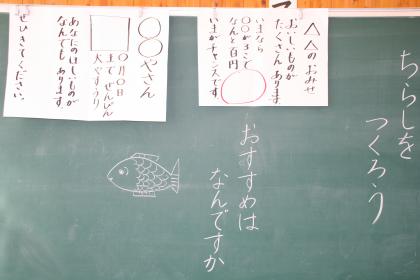 ちらしを
つくろう
△△のおみせ
おいしいものが
たくさんあります
いまなら
〇〇がまこで
なんと百円
いまがチャンスです。
おすすめは
なんですか
〇〇やさん
〇月〇日
までぜんぴん
大やすうり
あなたのほしいものが
なんでもあります。
ぜひきてください。